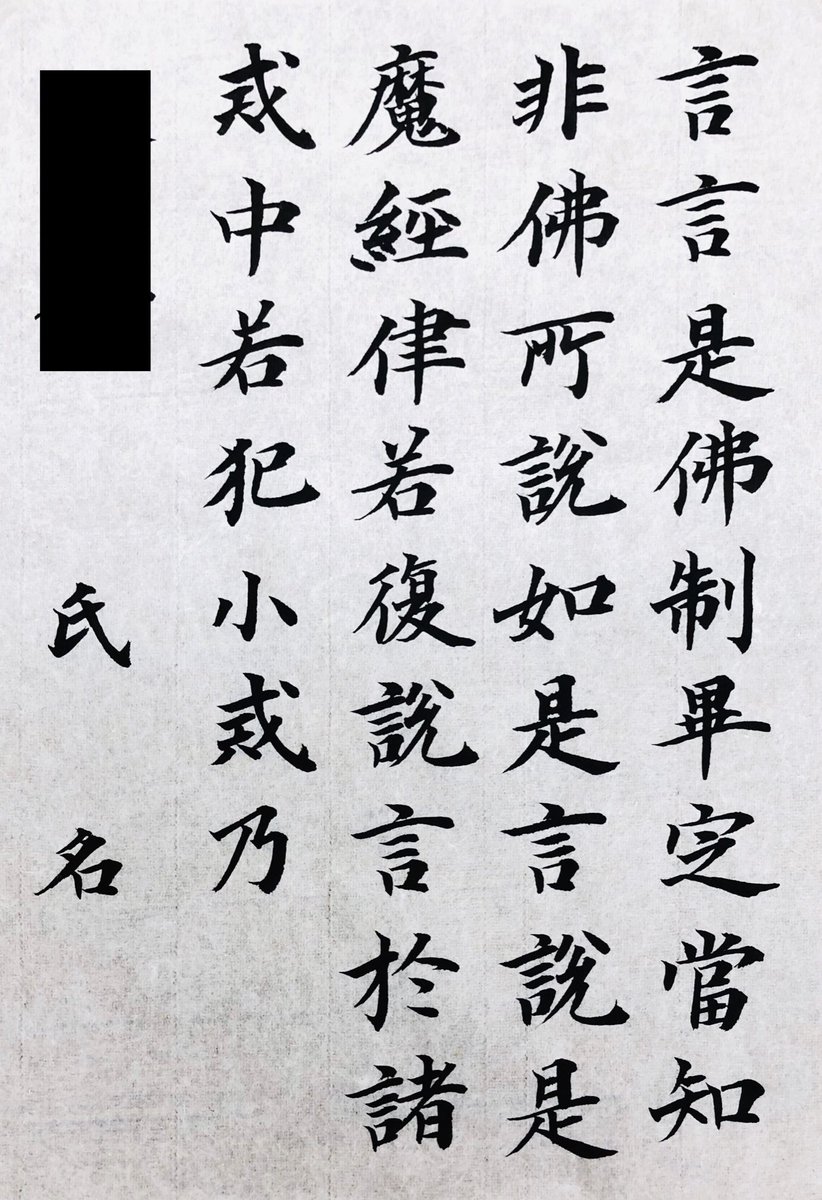 言言是佛制畢定當知
非佛所說如是言說是
魔經律若復說言於諸
戒中若犯小戒乃
氏名